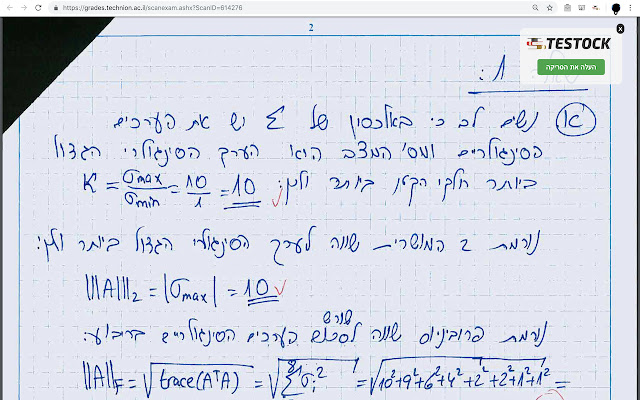 https://grades.technion.ac.il/scanexam.ashx?ScanID=614276
2
TESTOCK
העלה את הסריקה
1:
א) נשים לב כי באלכסון של Σ יש את הערכים
הסינגולריים ומס' המצב הוא הערך הסינגולרי הגדול
ביותר חלקי הקטן ביותר ולכן: K = σmax/σmin = 10/1 = 10 ✓
נורמת 2 המושרית שווה לערך הסינגולרי הגדול ביותר ולכן:
|||A|||₂ = |σmax| = 10 ✓
שורש
נורמת פרובניוס שווה לסכום הערכים הסינגולריים בריבוע:
||A||F = √trace(AᵀA) = √Σσᵢ² = √10²+9²+6²+4²+2²+2²+1²+1² =